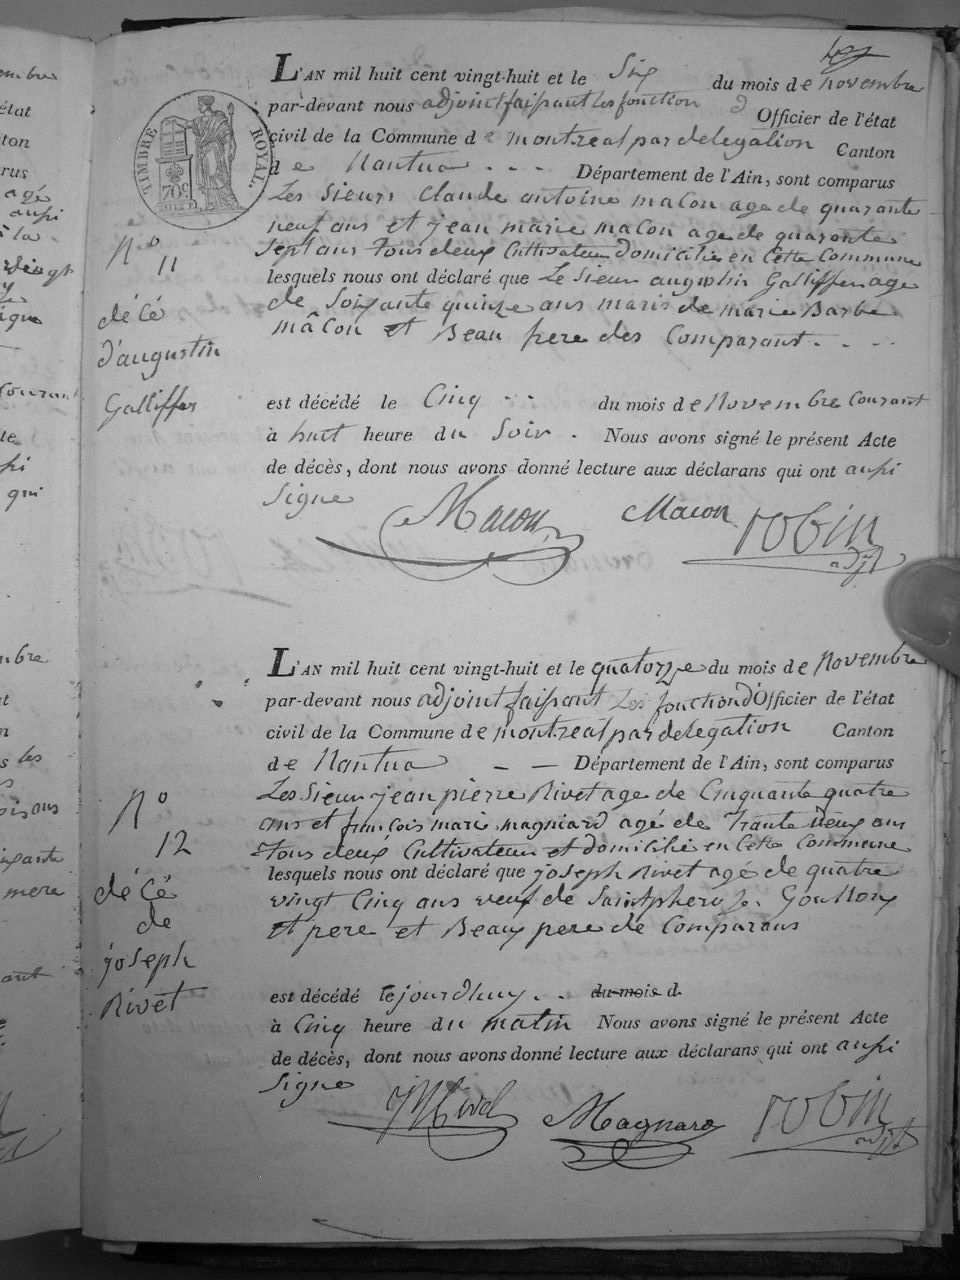 L'AN mil huit cent vingt-huit et le Six du mois de novembre
par-devant nous adjoint faissant les fonction d Officier de l'état
civil de la Commune de montreal par delegation Canton
de Nantua - - - Département de l'Ain, sont comparus
Les Sieurs Claude antoine macon age de quarante
neuf ans et jean marie macon age de quarante
Sept ans tous deux Cultivateur domicilies en Cette Commune
lesquels nous ont déclaré que Le Sieur augustin Galliffer age
de Soixante quinze ans maris de marie Barbe
mâcon et Beau pere des Comparant - - -
est décédé le Cinq - - du mois de Novembre Courant
à huit heure du Soir - Nous avons signé le présent Acte
de décès, dont nous avons donné lecture aux déclarans qui ont aussi
Signe
Macon Macon robin
adjt
TIMBRE ROYAL
70c
No
11
décé
d'augustin
Galliffer
L'AN mil huit cent vingt-huit et le quatorze du mois de Novembre
par-devant nous adjoint faissant Les fonction d'Officier de l'état
civil de la Commune de montreal par delegation Canton
de Nantua - - Département de l'Ain, sont comparus
Les Sieur jean pierre Rivet age de Cinquante quatre
ans et françois marie magniard agé de Trante deux ans
tous deux Cultivateur et domicilié en Cette Commune
lesquels nous ont déclaré que joseph Rivet agé de quatre
vingt Cinq ans veuf de Goullon
et pere et Beau pere de Comparans
est décédé lejourdhuy - - du mois d
à Cinq heure du matin Nous avons signé le présent Acte
de décès, dont nous avons donné lecture aux déclarans qui ont aussi
Signe
Rivet Magnard robin
adjt
No
12
décé
de
joseph
Rivet